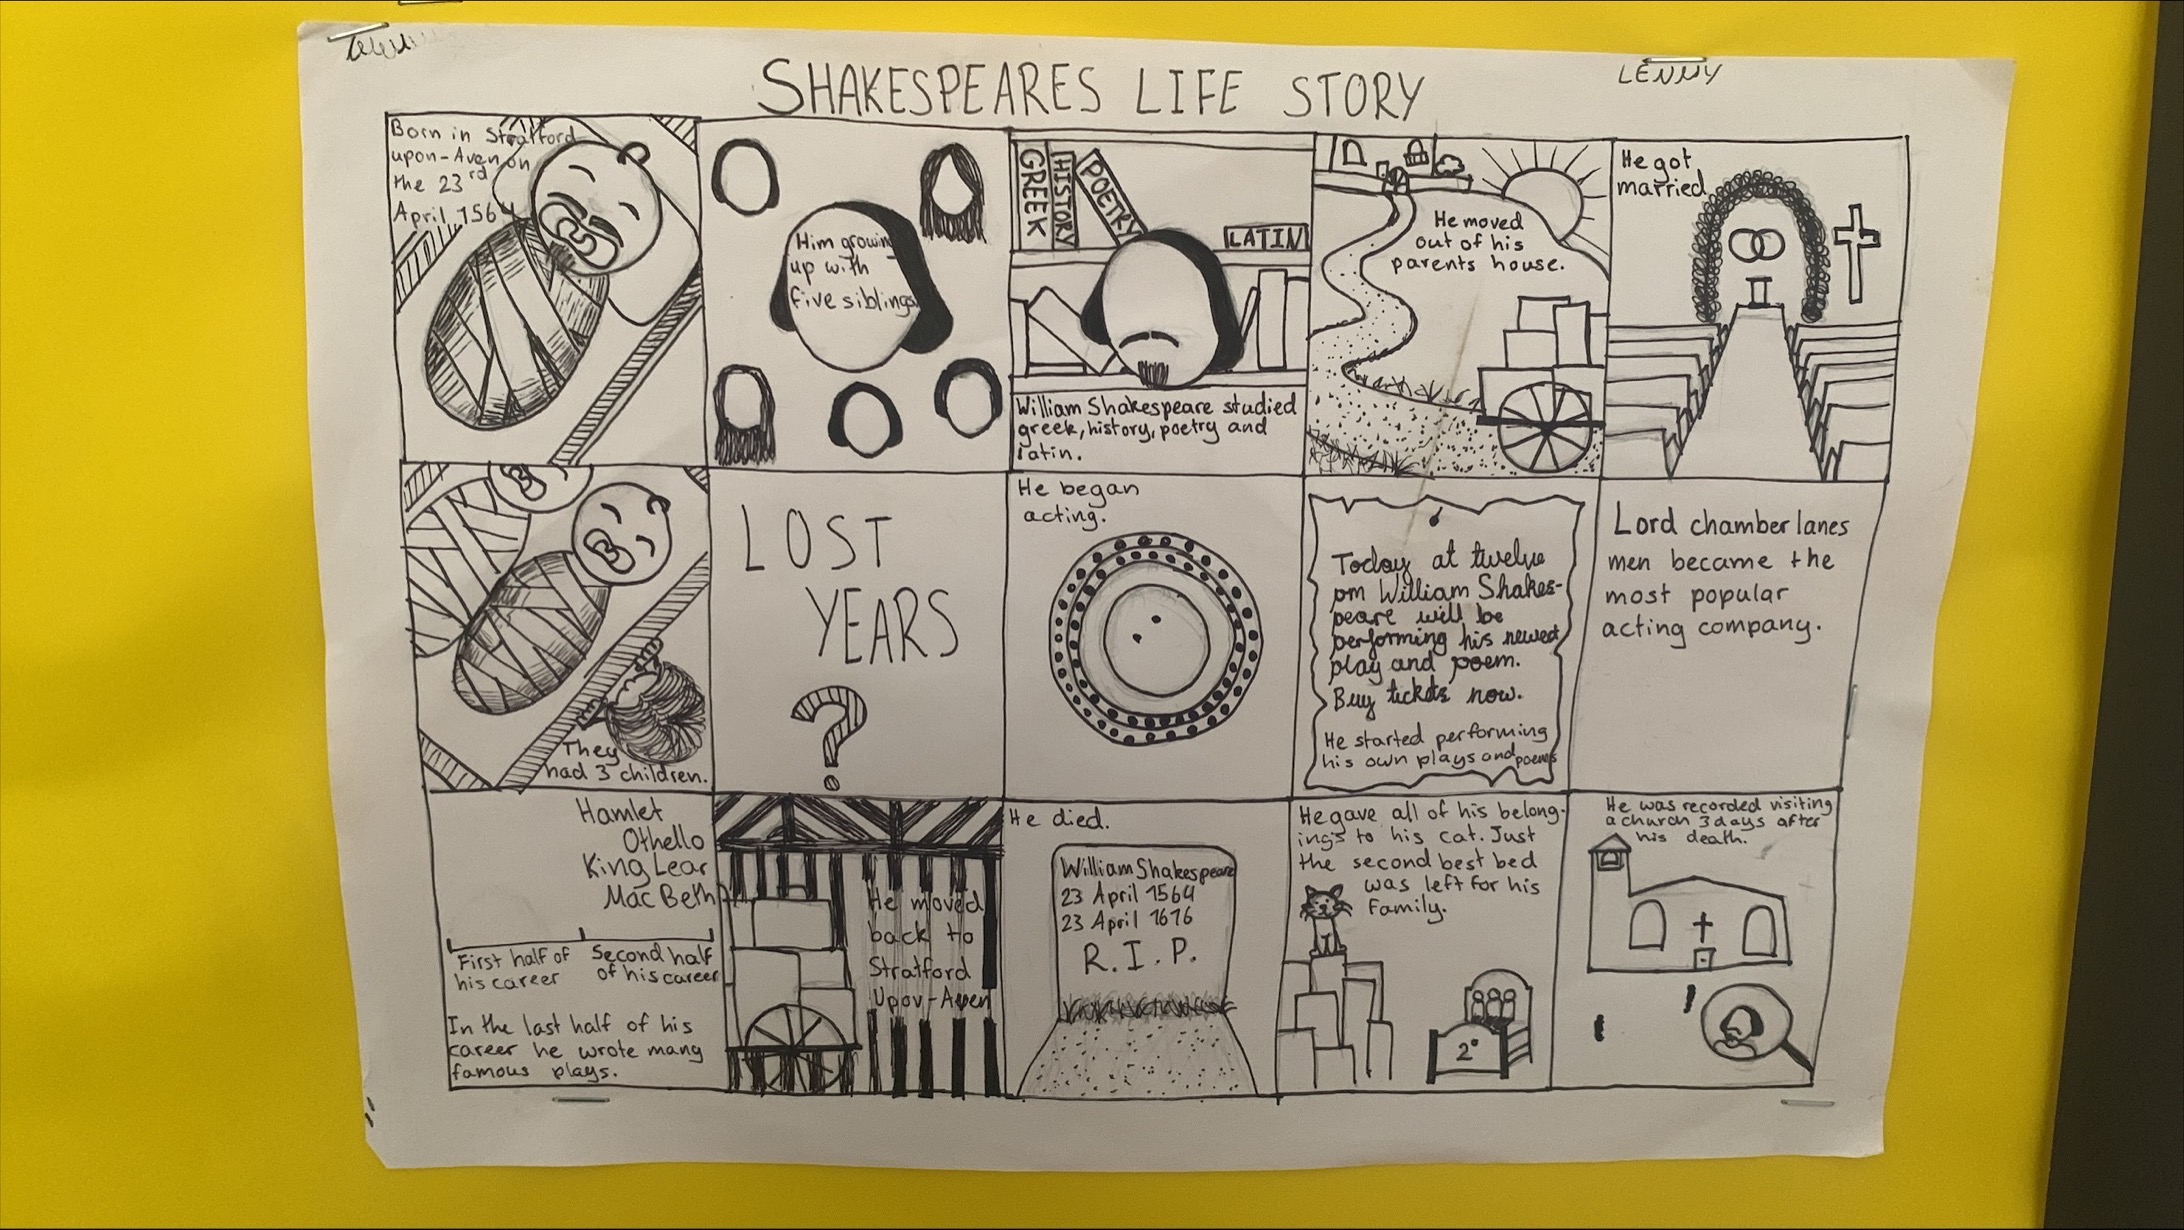 SHAKESPEARES LIFE STORY
LENNY
Born in Stratford
upon-Aven on
the 23rd
April 1564
Him growing
up with
five siblings
GREEK
HISTORY
POETRY
LATIN
William Shakespeare studied
greek, history, poetry and
latin.
He moved
out of his
parents house.
He got
married
They
had 3 children.
LOST
YEARS
?
He began
acting.
Today at twelve
pm William Shakes-
peare will be
performing his newest
play and poem.
Buy tickets now.
He started performing
his own plays and poems
Lord chamberlanes
men became the
most popular
acting company.
Hamlet
Othello
King Lear
Mac Beth
First half of
his career
Second half
of his career
In the last half of his
career he wrote many
famous plays.
He moved
back to
Stratford
Upon-Aven
He died.
William Shakespeare
23 April 1564
23 April 1616
R.I.P.
He gave all of his belong-
ings to his cat. Just
the second best bed
was left for his
family.
2°
He was recorded visiting
a church 3 days after
his death.